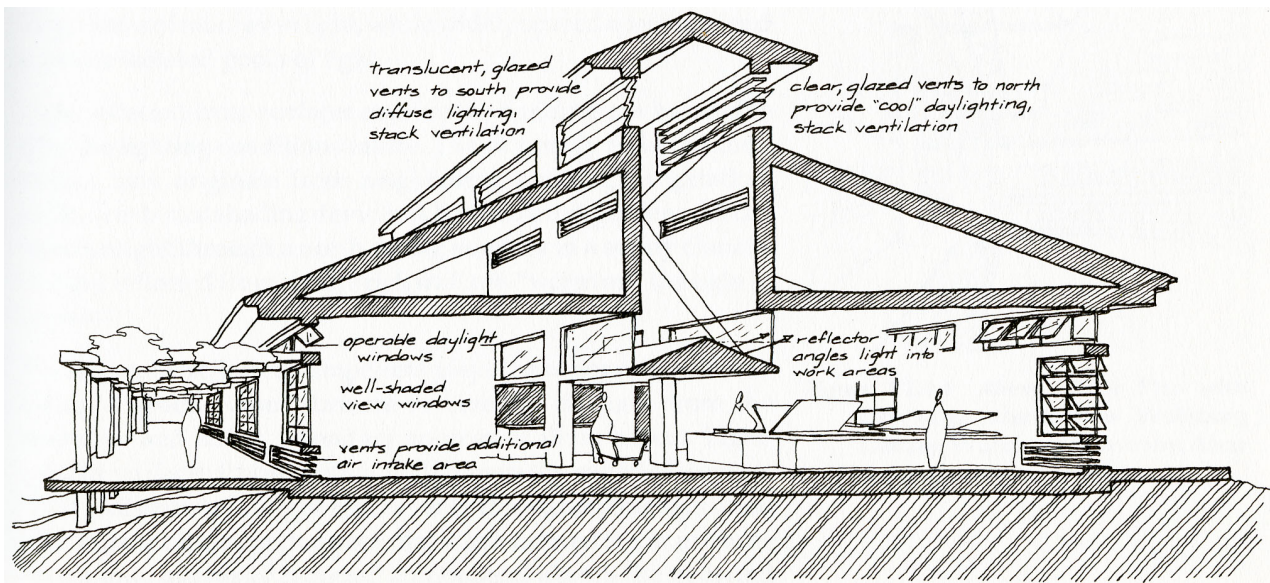 translucent, glazed
vents to south provide
diffuse lighting,
stack ventilation
clear, glazed vents to north
provide "cool" daylighting,
stack ventilation
operable daylight
windows
well-shaded
view windows
vents provide additional
air intake area
reflector
angles light into
work areas